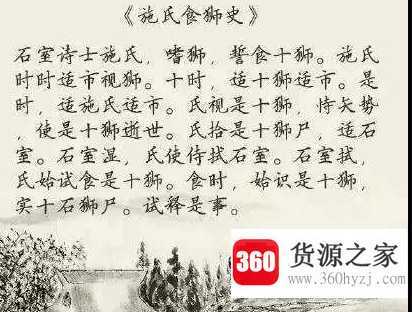 《施氏食狮史》
石室诗士施氏，嗜狮，誓食十狮。施氏
时时适市视狮。十时，适十狮适市。是
时，适施氏适市。氏视是十狮，恃矢势
，使是十狮逝世。氏拾是十狮尸，适石
室。石室湿，氏使侍拭石室。石室拭，
氏始试食是十狮。食时，始识是十狮，
实十石狮尸。试释是事。
360 货源之家
www.360hyzj.com